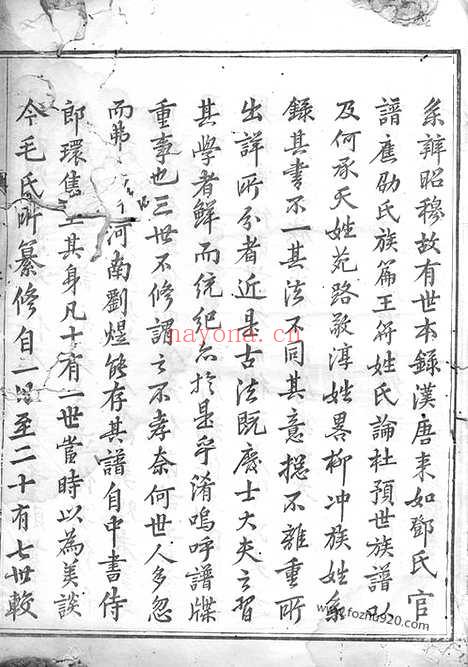 系辨昭穆故有世本錄漢唐来如鄧氏官
譜應劭氏族篇王符姓氏論杜預世族譜以
及何承天姓苑路敬淳姓畧柳冲族姓系
錄其書不一其法不同其意揔不離重所
出詳所分者近是古法既廢士大夫之習
其學者鮮而統紀於是乎淆嗚呼譜牒
重事也三世不修謂之不孝奈何世人多忽
而弗河南劉煜能存其譜自中書侍
郎環雋至其身凡十有一世當時以為美談
今毛氏所纂修自一世至二十有七世較
nayona.cn
www.fozhu920.com